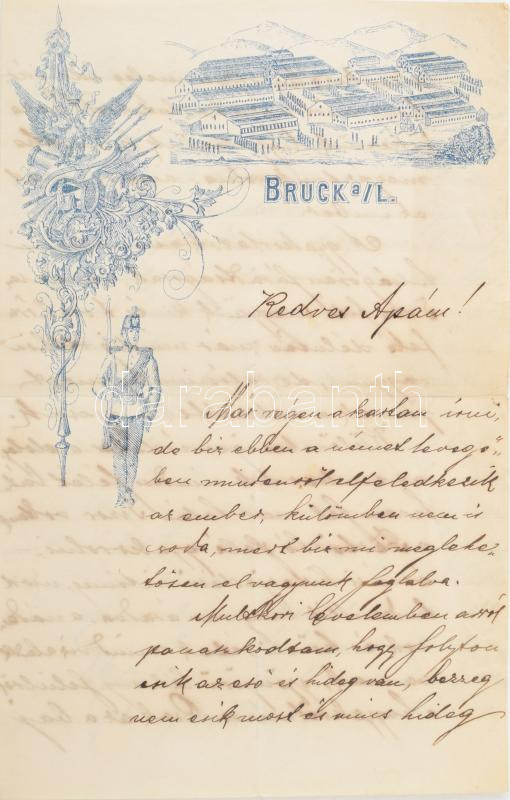 BRUCK a/L.
Kedves Apám!
Már régen akartam irni,
de biz ebben a német levegő„
ben mindenről elfeledkezik
az ember, külömben nem is
csoda, mert biz mi meglehe„
tősen el vagyunk foglalva.
Multkori levelemben arról
panaszkodtam, hogy folyton
esik az eső és hideg van, bezzeg
nem esik most és nincs hideg
darabanth